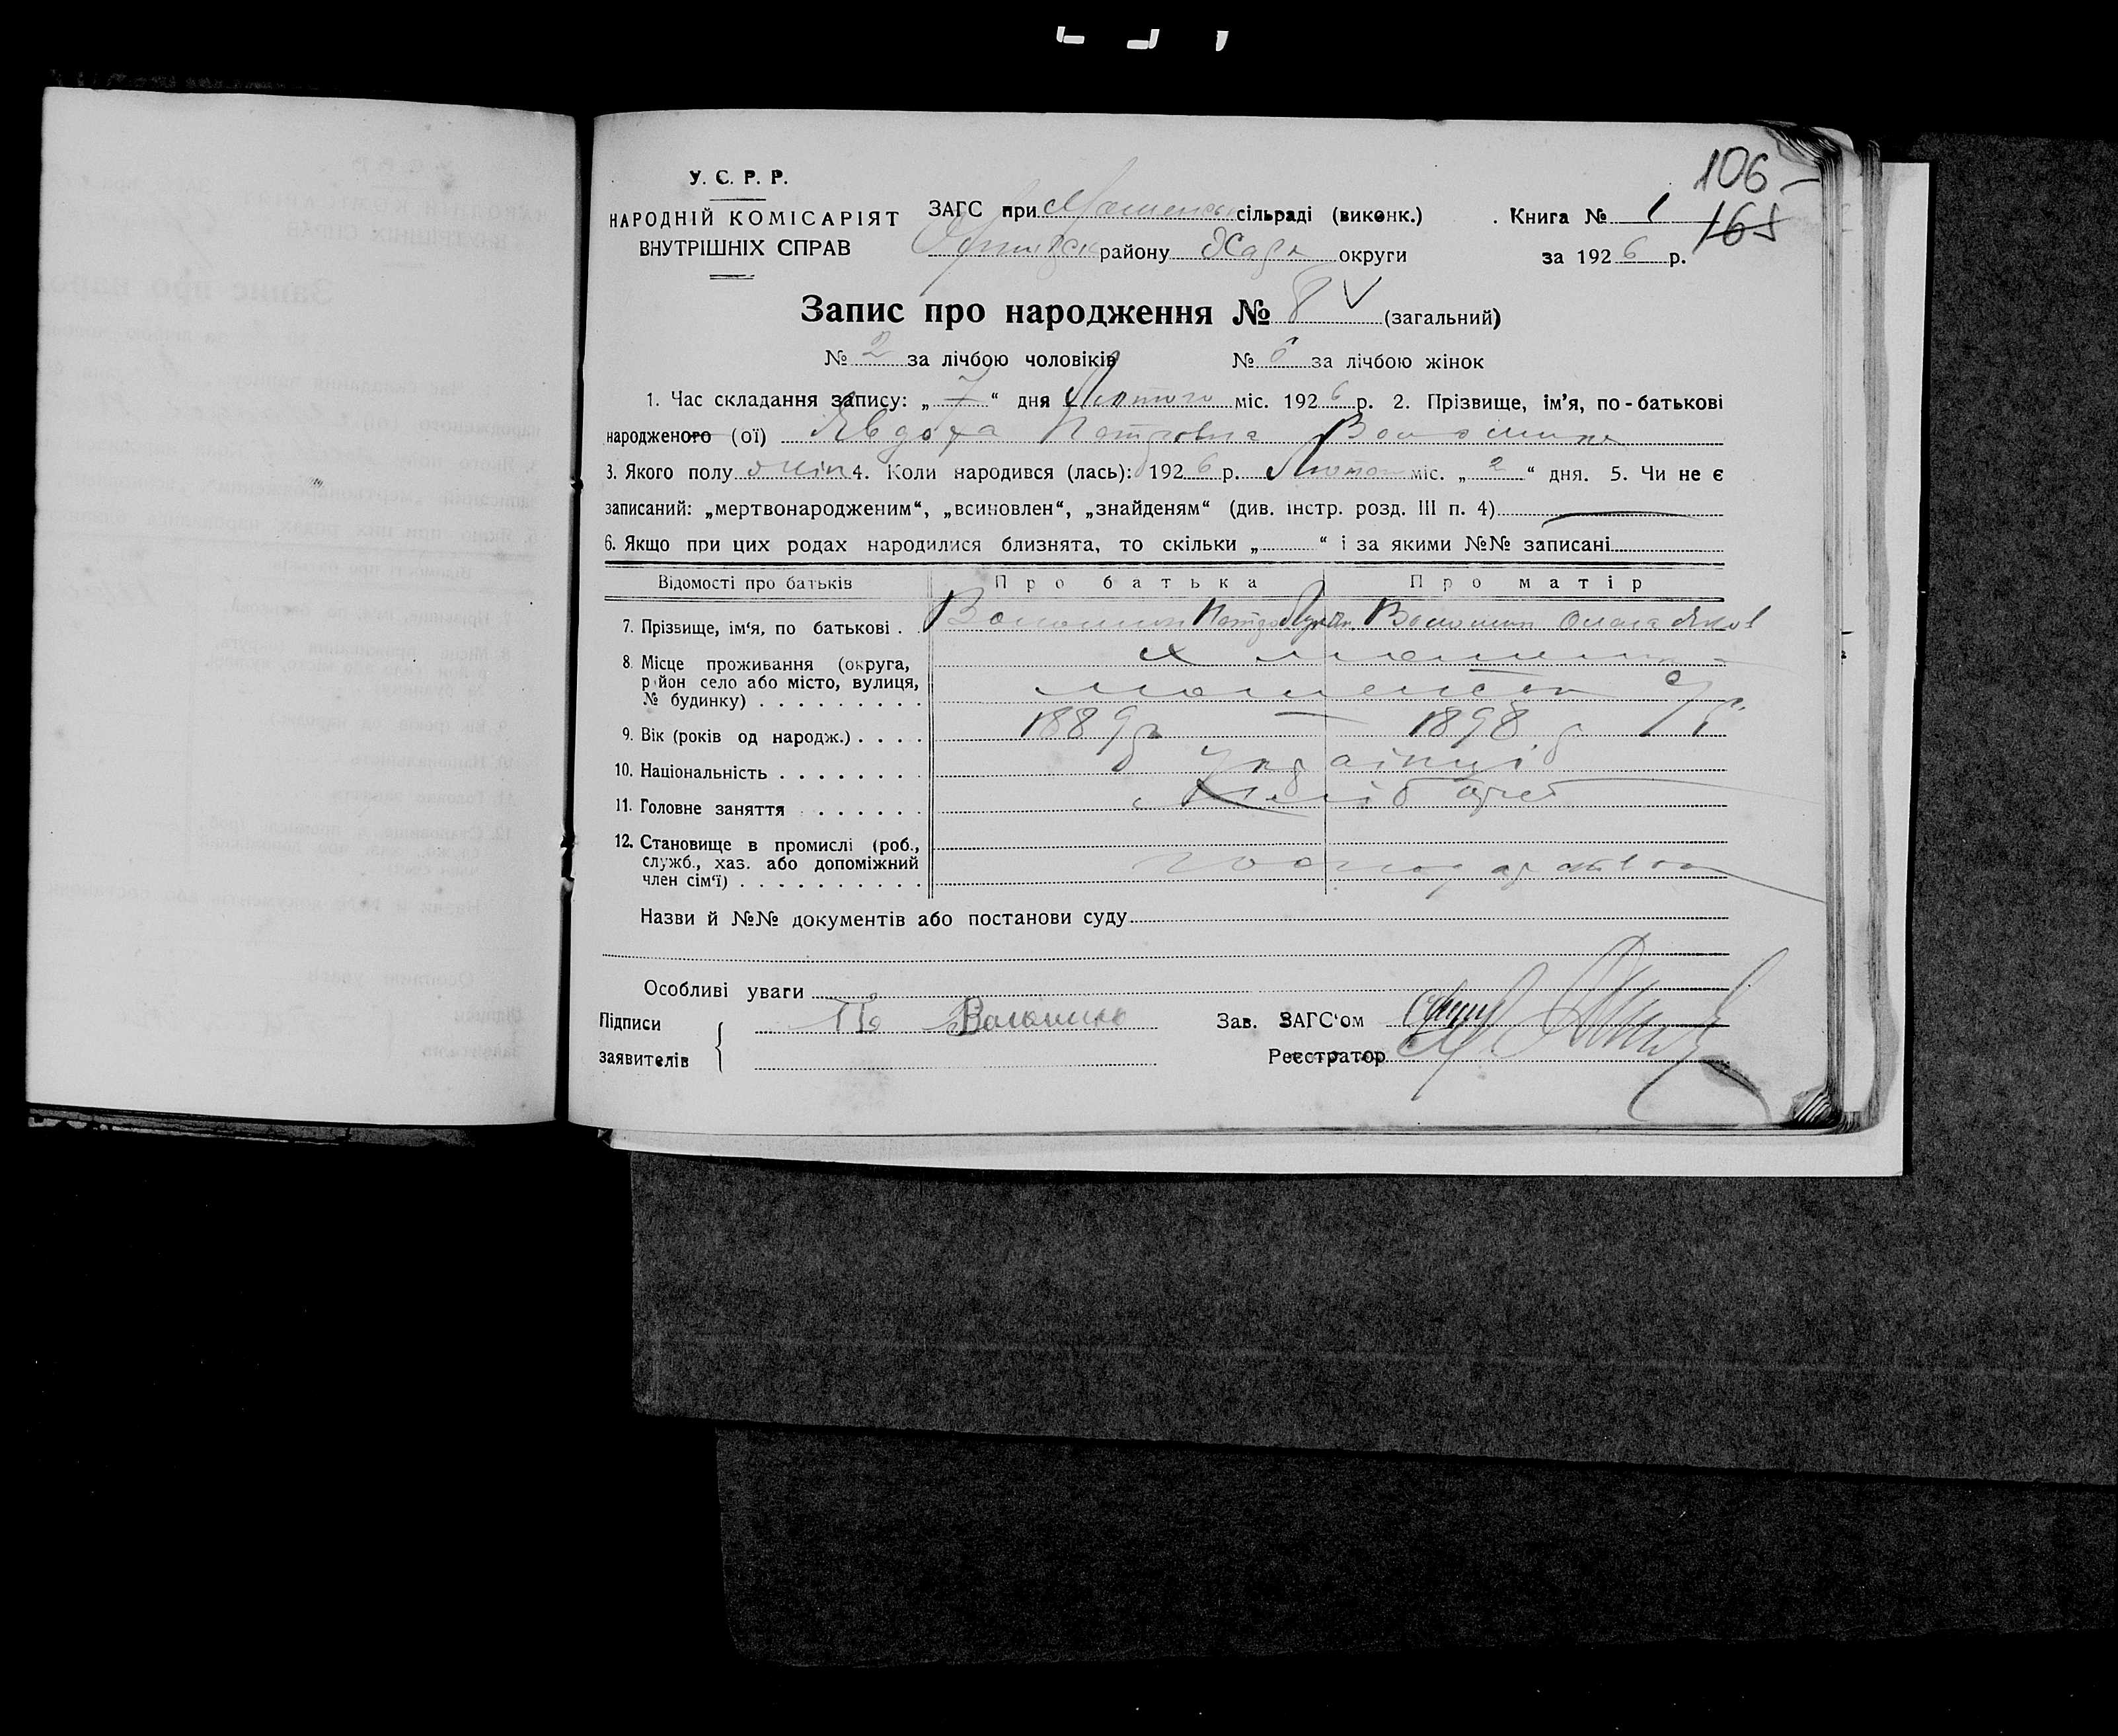 106
У. С. Р. Р.
НАРОДНІЙ КОМІСАРІЯТ
ВНУТРІШНІХ СПРАВ
ЗАГС при сільраді (виконк.)
району Харк округи
Книга № 1 165
за 1926 р.
Запис про народження № 8 (загальний)
№ 2 за лічбою чоловіків № 6 за лічбою жінок
1. Час складання запису: „ 7 “ дня Лютого міс. 1926 р. 2. Прізвище, ім’я, по-батькові
народженого (ої) Явдоха Петровна Волошина
3. Якого полу жін 4. Коли народився (лась): 1926 р. Лютого міс. „ 2 “ дня. 5. Чи не є
записаний: „мертвонародженим“, „всиновлен“, „знайденям“ (див. інстр. розд. III п. 4)
6. Якщо при цих родах народилися близнята, то скільки „ “ і за якими №№ записані
Відомості про батьків Про батька Про матір
7. Прізвище, ім‘я, по батькові . Волошин Петро Волошин
8. Місце проживання (округа,
район село або місто, вулиця,
№ будинку) . . . . . . . . .
9. Вік (років од народж.) . . . . 1889 р 1898 р
10. Національність . . . . . . . . українці
11. Головне заняття . . . . . . Хлібороб
12. Становище в промислі (роб.,
служб., хаз. або допоміжний
член сім‘ї) . . . . . . . . . .
Назви й №№ документів або постанови суду
Особливі уваги
Підписи Волошин
заявителів
Зав. ЗАГС‘ом
Реєстратор